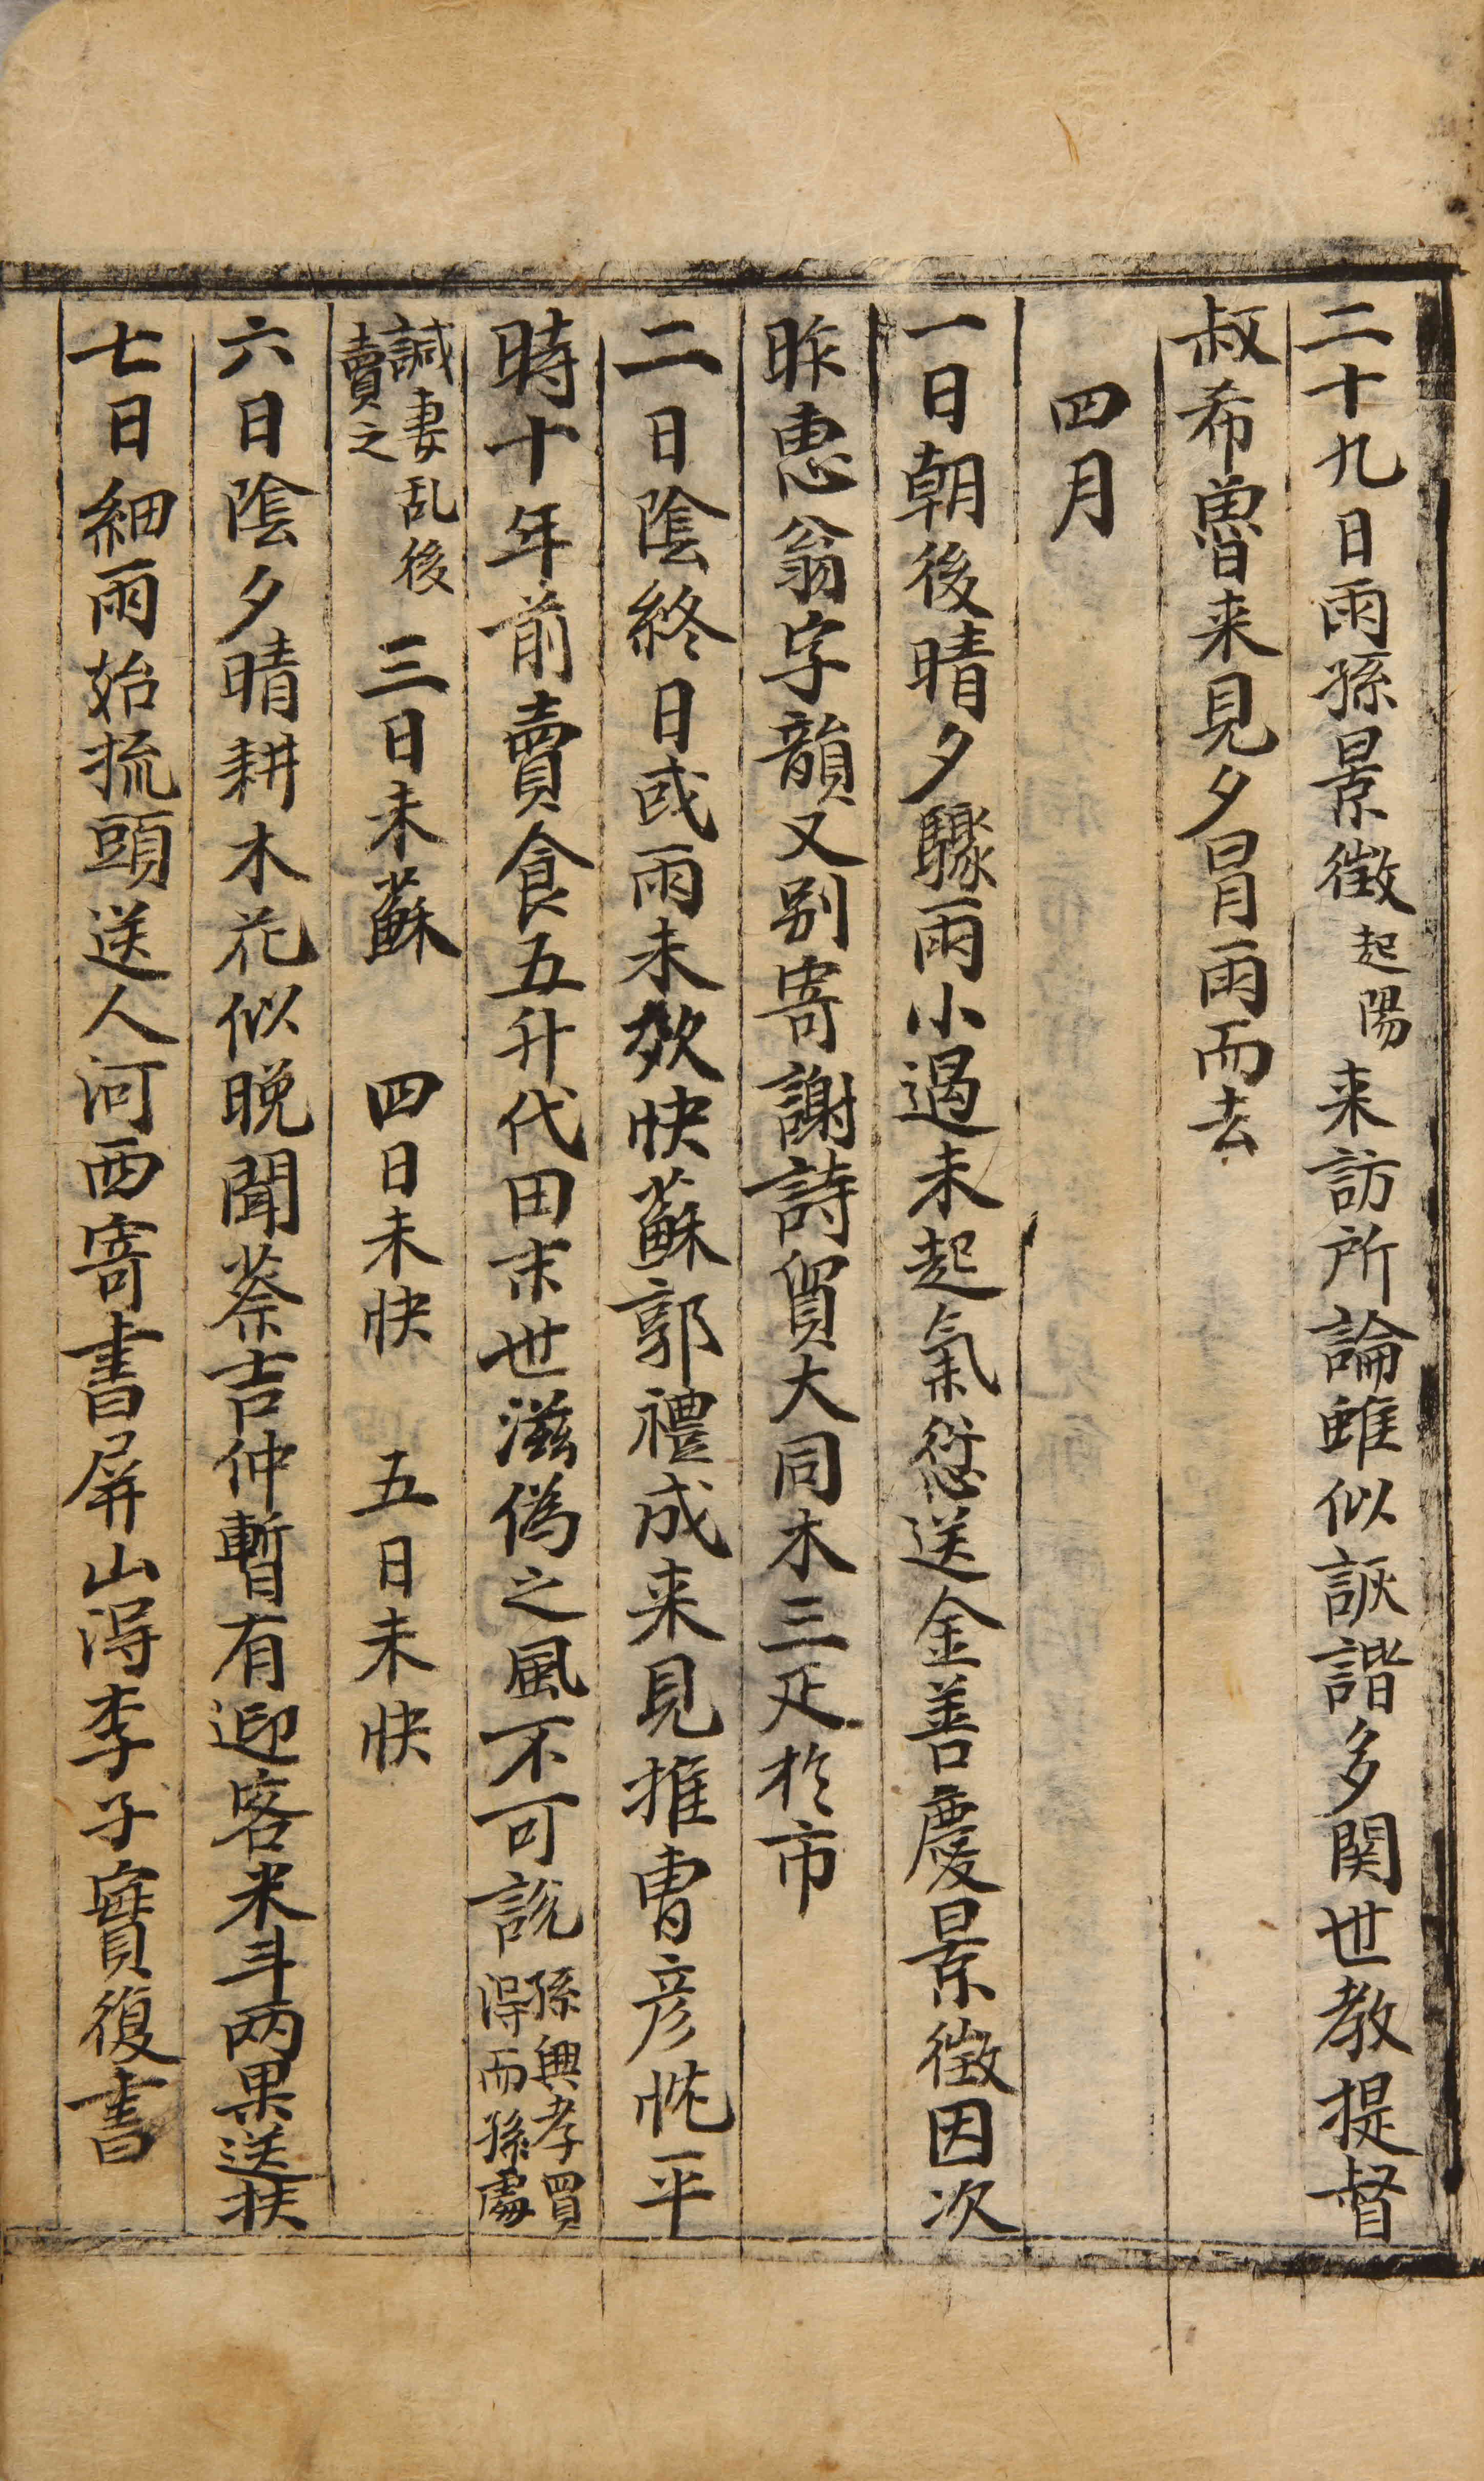 二十九日雨孫景徵起陽来訪所論雖似詼諧多関世教提督
叔希魯来見夕冒雨而去
四月
一日朝後晴夕驟雨小過未起氣愆送金善慶景徵因次
昨惠翁字韻又別寄謝詩貿大同木三疋扵市
二日陰終日或雨未欬快蘇郭禮成来見推曺彦恍平
時十年前賣食五升代田末世滋偽之風不可說孫興孝買
得而孫處
諴妻乱後
賣之
三日未蘇 四日未快 五日未快
六日陰夕晴耕木花似晚聞蔡吉仲暫有迎客米斗两果送扶
七日細雨始梳頭送人河西寄書屏山得李子實復書